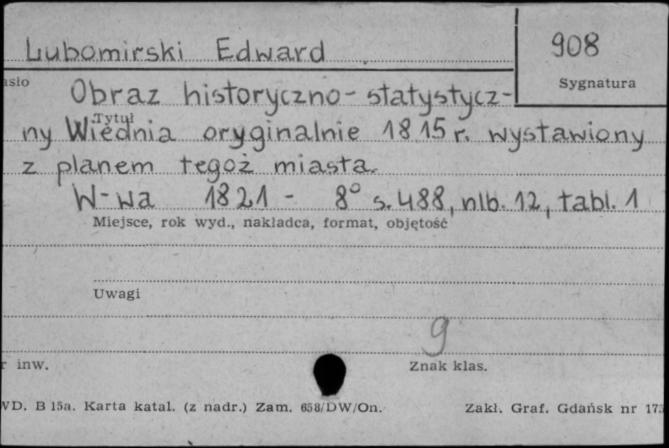 Lubomirski Edward
908
Sygnatura
asło
Obraz historyczno-statystycz-
Tytuł
ny Wiednia oryginalnie 1815 r. wystawiony
z planem tegoż miasta.
W-wa 1821 - 8° s. 488, nlb. 12, tabl. 1
Miejsce, rok wyd., nakładca, format, objętość
Uwagi
9
r inw.
Znak klas.
WD. B 15a. Karta katal. (z nadr.) Zam. 658/DW/On.
Zakł. Graf. Gdańsk nr 173